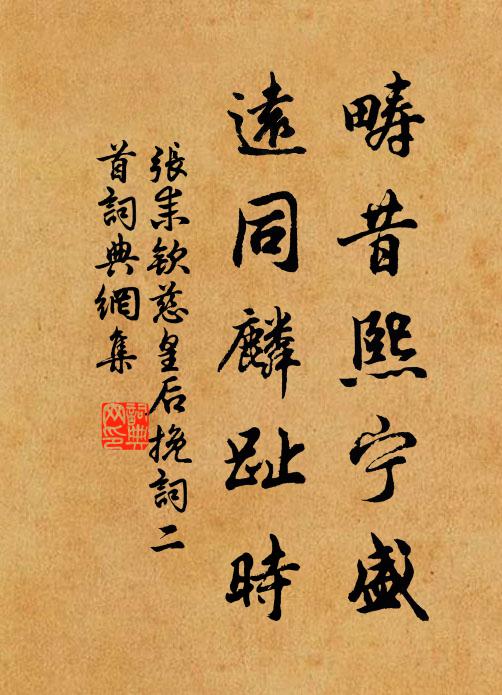 疇昔熙宁盛
遠同麟趾時
張耒欽慈皇后挽詞二
首詞典網集
詞典
网印